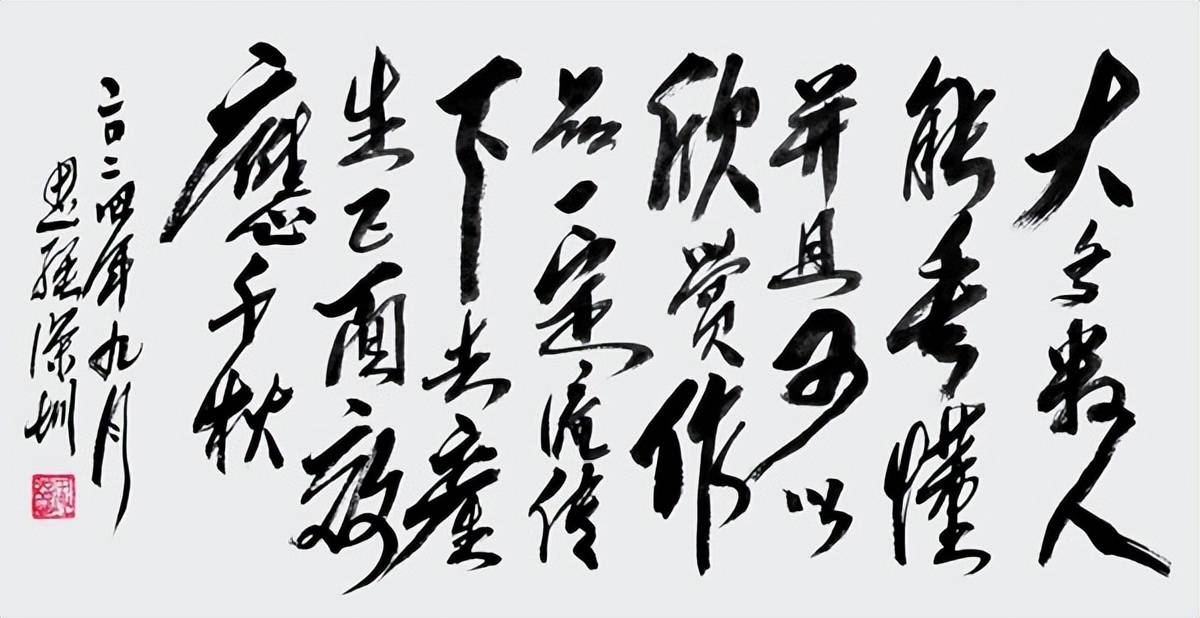 大多数人
能看懂
并且可以
欣賞作
品一定流传
下去産
生正面效
應千秋
二〇二四年九月
深圳